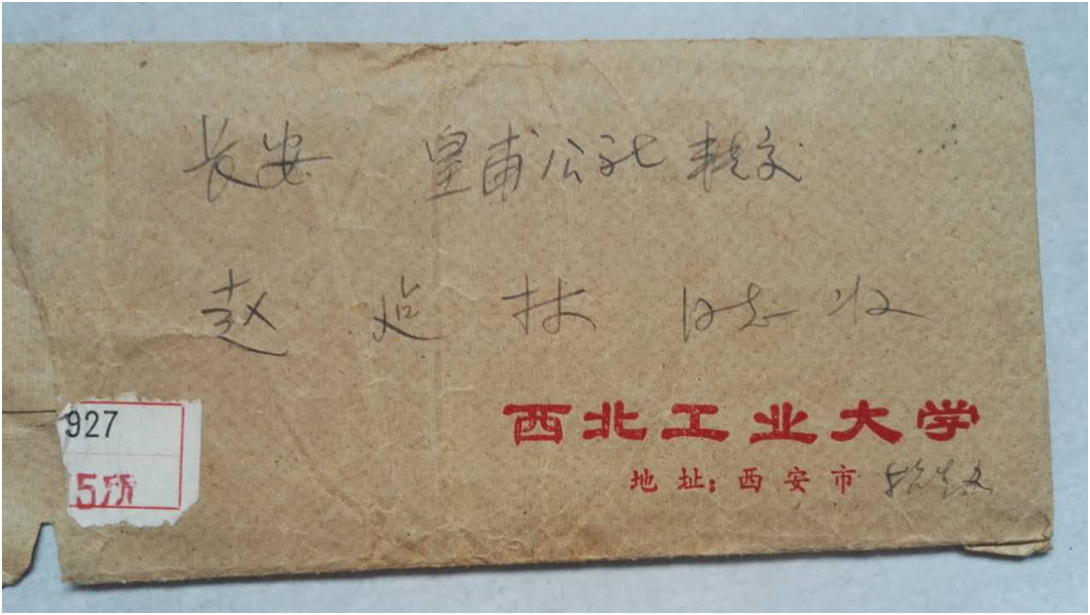 长安 皇甫公社 转交
赵 延 林 同志 收
927
5所
西北工业大学
地址：西安市